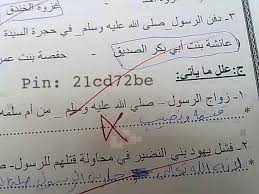 غزوة الخندق
٣- دفن الرسول صلى الله عليه وسلم_ في حجرة السيدة
(عائشة بنت أبي بكر الصديق - حفصة بنت عمر
ج: علل ما يأتى:
Pin: 21cd72be
١- زواج الرسول - صلى الله عليه وسلم _ من أم سلمة
٢- فشل يهود بني النضير في محاولة قتلهم للرسول-